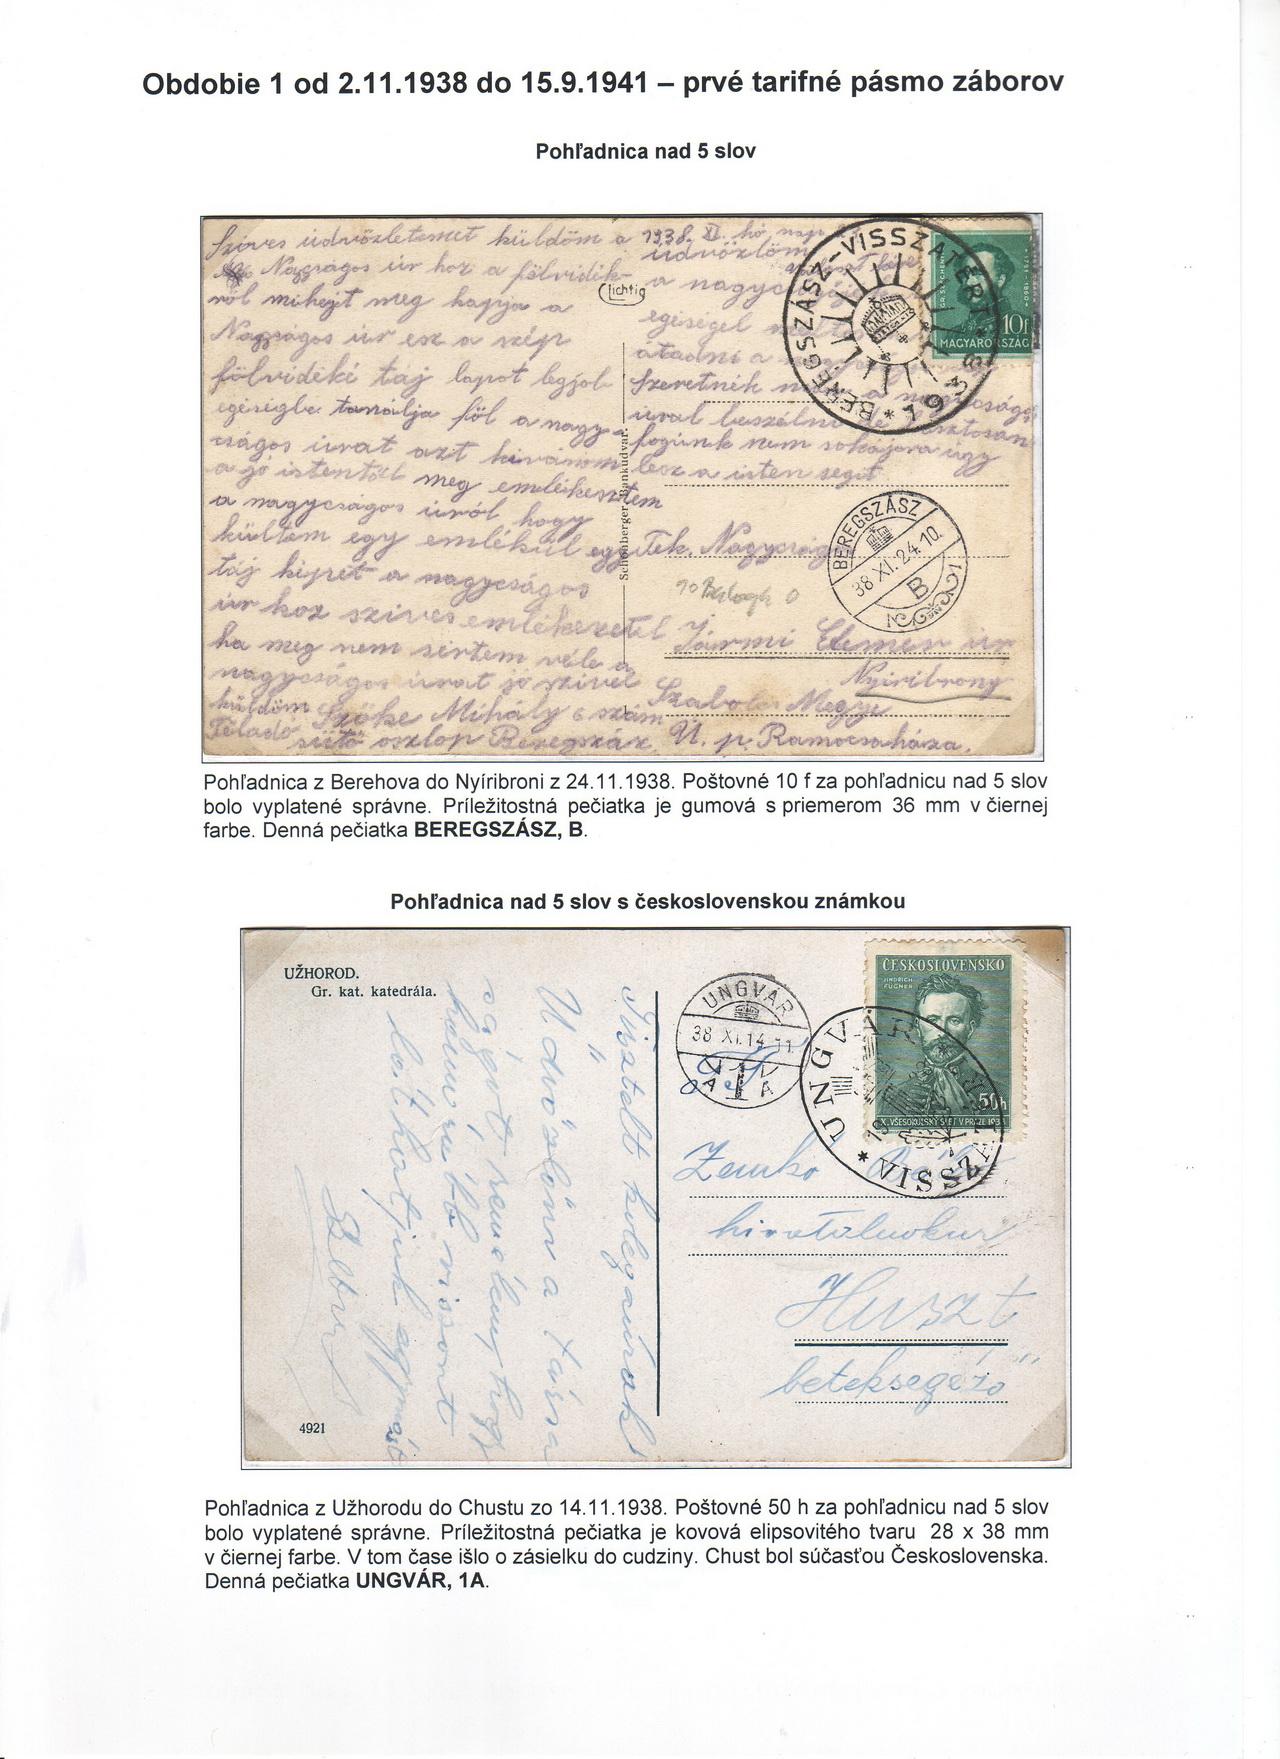 Obdobie 1 od 2.11.1938 do 15.9.1941 – prvé tarifné pásmo záborov
Pohľadnica nad 5 slov
Szives üdvözletemet küldöm a
Nagságos úr hoz a fölvidik-
ről mihejt meg kapja a
Nagságos úr esz a szép
fölvidéki táj lapot legjob
egiségbe tanálja föl a nagy-
cságos úrat azt kivánom
a jó istentől meg emlékesztem
a nagycságos úról hogy
kültem egy emlékül egy
táj képet a nagycságos
úr hoz szives emlékezetel
ha meg nem sértem véle a
nagycságos úrat jó szivel
küldöm Szőke Mihály 6 szám
Feladó sütő oszlop Beregszász
Lichtig
Schönberger Bankudvar.
1938. XI. hó
üdvözlöm
a nagycságos
egiségel
átadni a
Szeretnék
úral beszélni de
fogunk nem sokájora úgy
lesz a isten segit
Tek. Nagyság
Balogh
Jármi Elemér úr
Nyiribrony
Szabolcs Megye
U. p. Ramocsaháza.
BEREGSZÁSZ-VISSZATÉRT * 1938 *
10f
MAGYARORSZÁG
BEREGSZÁSZ
38 XI. 24. 10.
B
Pohľadnica z Berehova do Nyíribroni z 24.11.1938. Poštovné 10 f za pohľadnicu nad 5 slov
bolo vyplatené správne. Príležitostná pečiatka je gumová s priemerom 36 mm v čiernej
farbe. Denná pečiatka BEREGSZÁSZ, B.
Pohľadnica nad 5 slov s československou známkou
UŽHOROD.
Gr. kat. katedrála.
Tisztelt kolegának
Üdvözlöm a társa
ságot remélem, hogy
hamarább visont
láthatjuk egymást
4921
UNGVÁR
38 XI. 14. 11
1
A A
UNGVÁR VISSZATÉRT *
ČESKOSLOVENSKO
JINDŘICH
FÜGNER
50h
X. VŠESOKOLSKÝ SLET V PRAZE 1938
Zemkó Béla
hivatalnokur
Huszt
beteksegézö
Pohľadnica z Užhorodu do Chustu zo 14.11.1938. Poštovné 50 h za pohľadnicu nad 5 slov
bolo vyplatené správne. Príležitostná pečiatka je kovová elipsovitého tvaru 28 x 38 mm
v čiernej farbe. V tom čase išlo o zásielku do cudziny. Chust bol súčasťou Československa.
Denná pečiatka UNGVÁR, 1A.